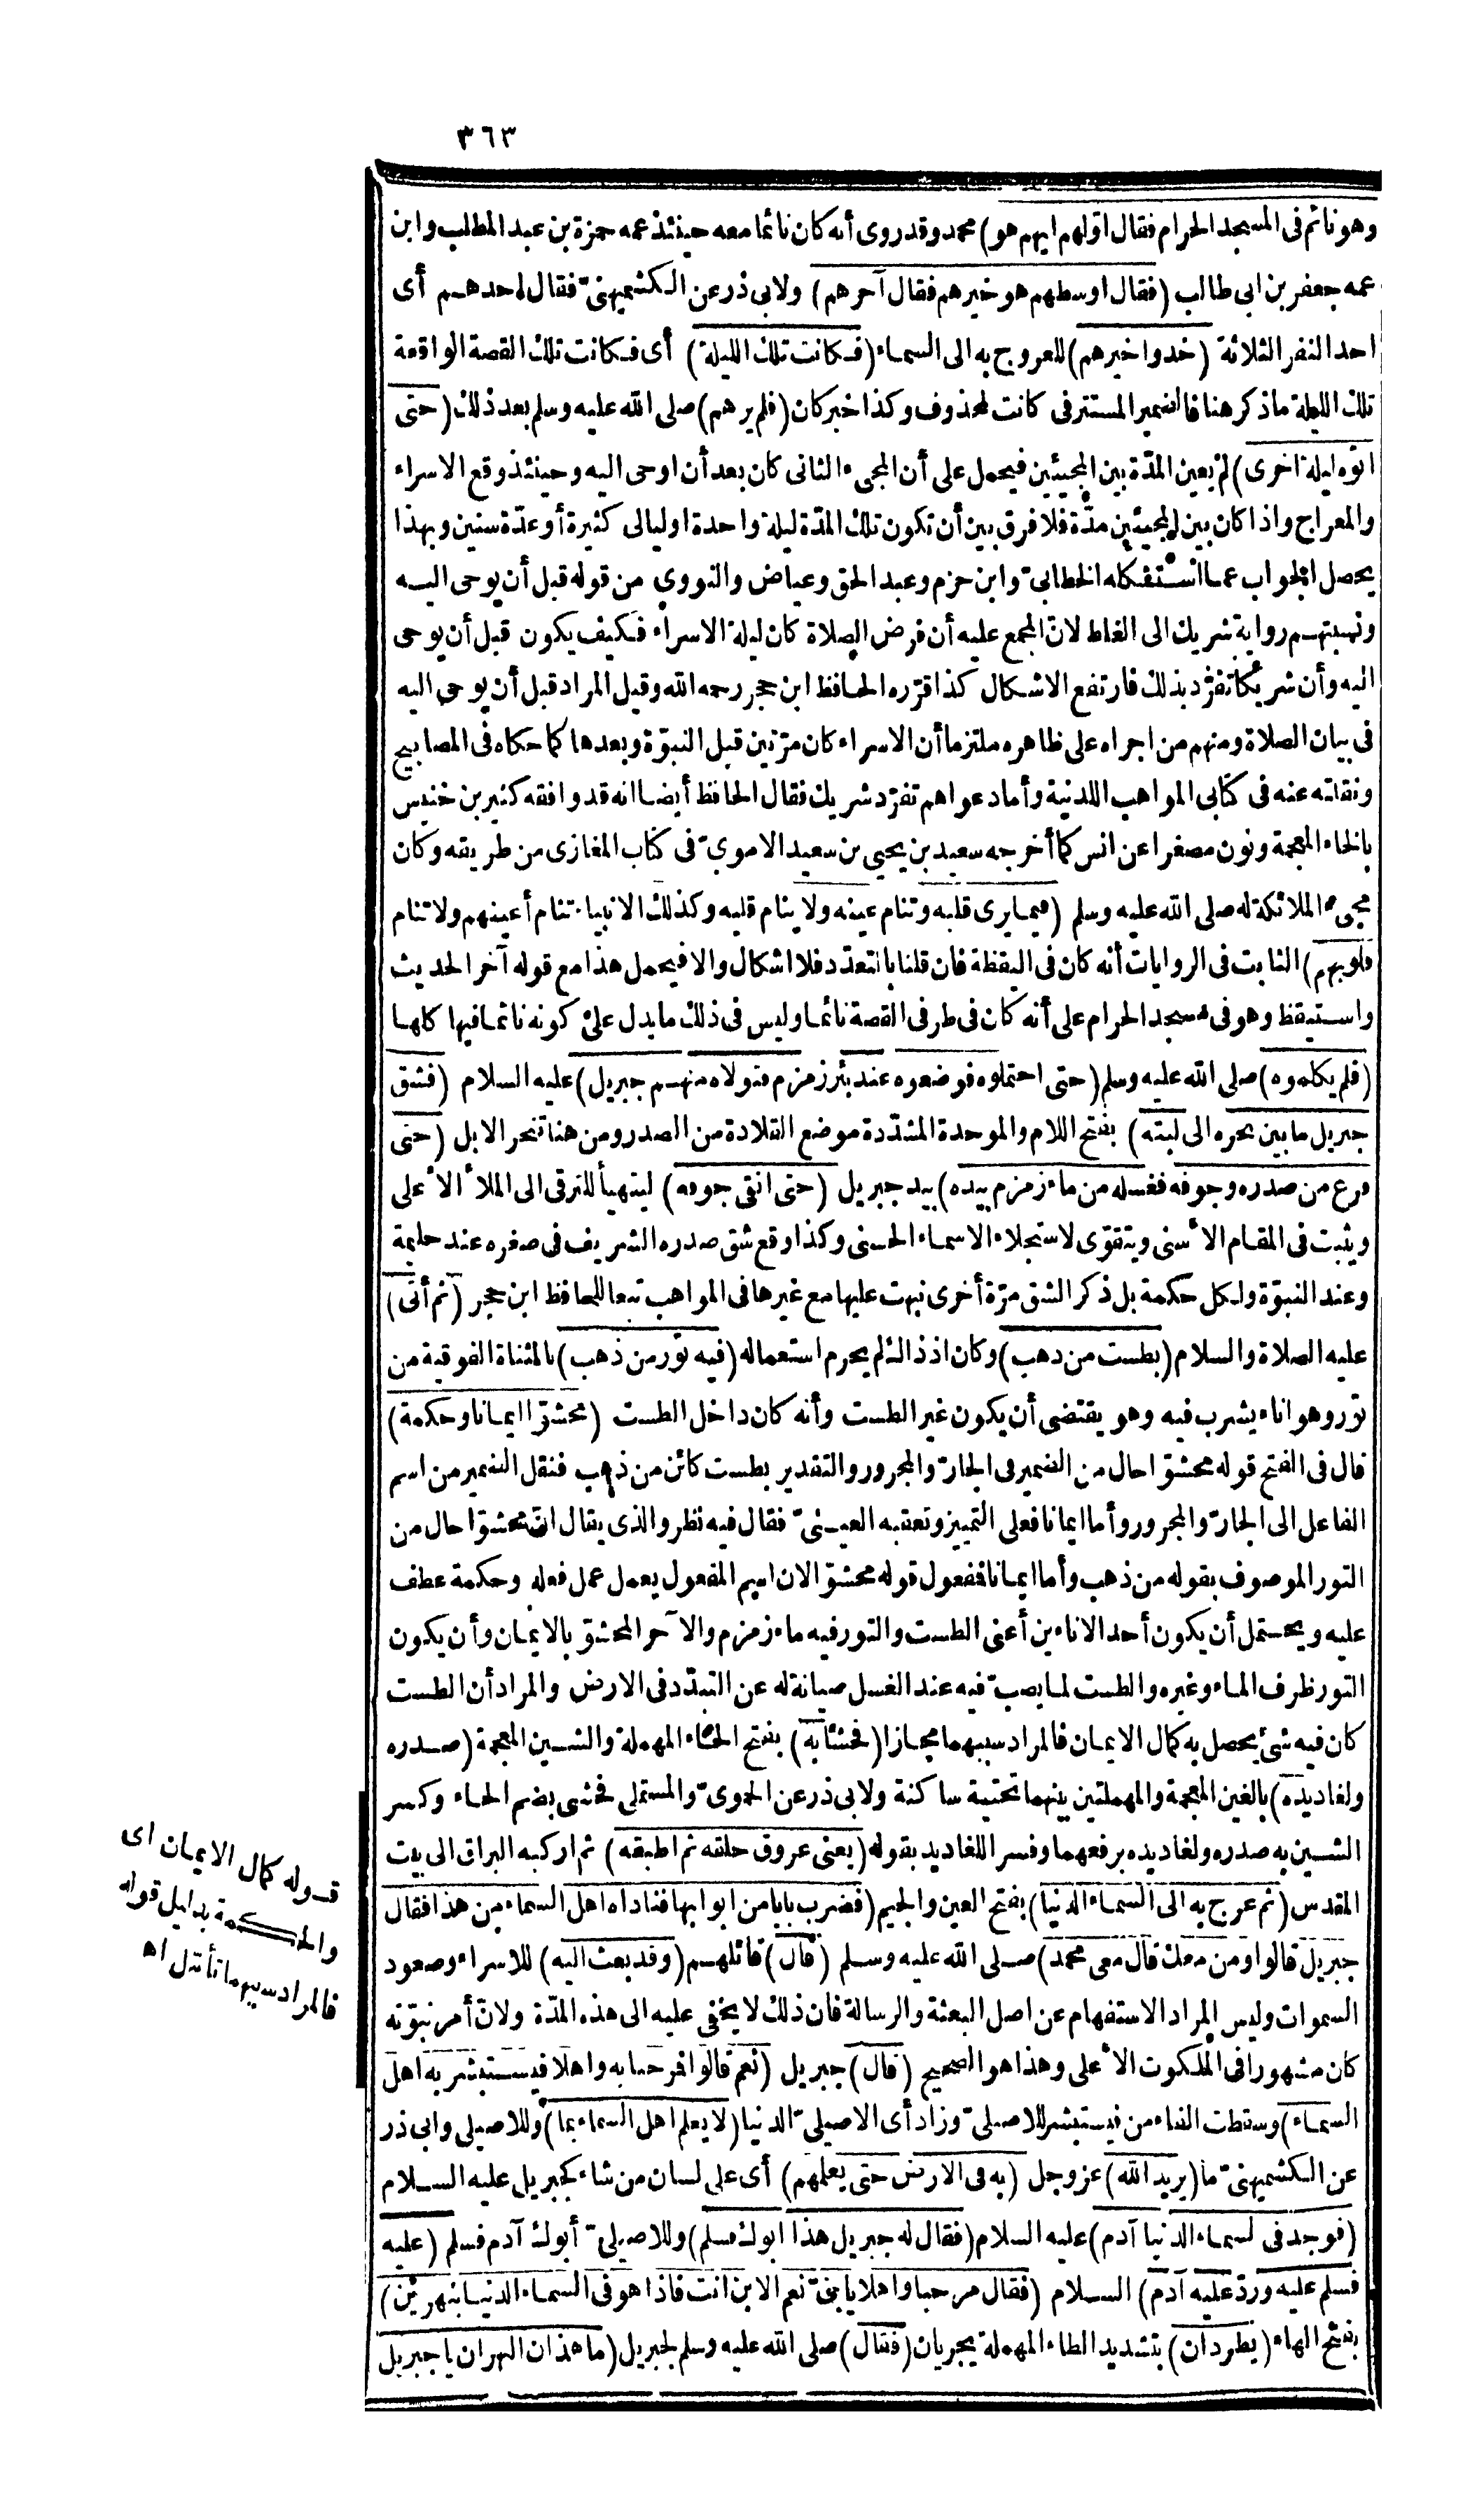 ٣٦٣
وهو نائم فى المسجد الحرام فقال اوّلهم ايهم هو) محمد وقدروى أنه كان نائما معه حينئذ عمه حمزة بن عبد المطلب وابن
عمه جعفر بن ابى طالب (فقال اوسطهم هو خيرهم فقال آخرهم) ولابى ذر عن الكشميهنىّ فقال احدهم أى
احد النفر الثلاثة (خذوا خيرهم) للعروج به الى السماء (فكانت تلك الليلة) أى فكانت تلك القصة الواقعة
تلك الليلة ما ذكر هنا فالضمير المستتر فى كانت لمحذوف وكذا خبر كان (فلم يرهم) صلى الله عليه وسلم بعد ذلك (حتى
اتوه ليلة اخرى) لم يعين المدّة بين المجيئين فيحمل على أن المجىء الثانى كان بعد أن اوحى اليه وحينئذ وقع الاسراء
والمعراج واذا كان بين المجيئين مدّة فلا فرق بين أن تكون تلك المدّة ليلة واحدة اوليالى كثيرة أو عدّة سنين وبهذا
يحصل الجواب عما استشكله الخطابىّ وابن حزم وعبد الحق وعياض والنووى من قوله قبل أن يوحى اليه
ونسبتهم رواية شريك الى الغلط لانّ المجمع عليه أن فرض الصلاة كان ليلة الاسراء فكيف يكون قبل أن يوحى
اليه وأن شريكا تفرّد بذلك فارتفع الاشكال كذا قرّره الحافظ ابن حجر رحمه الله وقيل المراد قبل أن يوحى اليه
فى بيان الصلاة ومنهم من اجراه على ظاهره ملتزما أن الاسراء كان مرّتين قبل النبوّة وبعدها كما حكاه فى المصابيح
ونقلته عنه فى كتابى المواهب اللدنية وأما دعواهم تفرّد شريك فقال الحافظ أيضا انه قد وافقه كثير بن خنيس
بالخاء المعجمة ونون مصغرا عن انس كما أخرجه سعيد بن يحيى بن سعيد الاموىّ فى كتاب المغازى من طريقه وكان
مجىء الملائكة له صلى الله عليه وسلم (فيما يرى قلبه وتنام عينه ولا ينام قلبه وكذلك الانبياء تنام أعينهم ولا تنام
قلوبهم) الثابت فى الروايات أنه كان فى اليقظة فان قلنا بالتعدّد فلا اشكال والا فيحمل هذا مع قوله آخر الحديث
واستيقظ وهو فى مسجد الحرام على أنه كان فى طرفى القصة نائما وليس فى ذلك ما يدل على كونه نائما فيها كلها
(فلم يكلموه) صلى الله عليه وسلم (حتى احتملوه فوضعوه عند بئر زمزم فتولاه منهم جبريل) عليه السلام (فشق
جبريل ما بين نحره الى لبته) بفتح اللام والموحدة المشدّدة موضع القلادة من الصدر ومن هنا تنحر الابل (حتى
فرغ من صدره وجوفه فغسله من ماء زمزم بيده) بيد جبريل (حتى انقى جوفه) ليتهيأ للترقى الى الملأ الأعلى
ويثبت فى المقام الأسنى ويتقوّى لاستجلاء الاسماء الحسنى وكذا وقع شق صدره الشريف فى صغره عند حليمة
وعند النبوّة ولكل حكمة بل ذكر الشق مرّة أخرى نبهت عليها مع غيرها فى المواهب تبعا للحافظ ابن حجر (ثم أتى)
عليه الصلاة والسلام (بطست من ذهب) وكان اذ ذاك لم يحرم استعماله (فيه تور من ذهب) بالمثناة الفوقية من
تور وهو اناء يشرب فيه وهو يقتضى أن يكون غير الطست وأنه كان داخل الطست (محشوّا ايمانا وحكمة)
قال فى الفتح قوله محشوّا حال من الضمير فى الجارّ والمجرور والتقدير بطست كائن من ذهب فنقل الضمير من اسم
الفاعل الى الجارّ والمجرور وأما ايمانا فعلى التمييز وتعقبه العينىّ فقال فيه نظر والذى يقال انّ محشوّا حال من
التور الموصوف بقوله من ذهب وأما ايمانا فمفعول قوله محشوّا لان اسم المفعول يعمل عمل فعله وحكمة عطف
عليه ويحتمل أن يكون أحد الاناءين أعنى الطست والتور فيه ماء زمزم والآخر المحشوّ بالايمان وأن يكون
التور ظرف الماء وغيره والطست لما يصبّ فيه عند الغسل صيانة له عن التبدّد فى الارض والمراد أن الطست
كان فيه شئ يحصل به كمال الايمان فالمراد سببهما مجازا (فحشا به) بفتح الحاء المهملة والشين المعجمة (صدره
ولغاديده) بالغين المعجمة والمهملتين بينهما تحتية ساكنة ولابى ذر عن الحموىّ والمستملى فحشى بضم الحاء وكسر
الشين به صدره ولغاديده برفعهما وفسر اللغاديد بقوله (يعنى عروق حلقه ثم اطبقه) ثم اركبه البراق الى بيت
المقدس (ثم عرج به الى السماء الدنيا) بفتح العين والجيم (فضرب بابا من ابوابها فناداه اهل السماء من هذا فقال
جبريل قالوا ومن معك قال معى محمد) صلى الله عليه وسلم (قال) قائلهم (وقد بعث اليه) للاسراء وصعود
السموات وليس المراد الاستفهام عن اصل البعثة والرسالة فان ذلك لا يخفى عليه الى هذه المدّة ولانّ أمر نبوّته
كان مشهورا فى الملكوت الأعلى وهذا هو الصحيح (قال) جبريل (نعم قالوا فمرحبا به واهلا فيستبشر به اهل
السماء) وسقطت الفاء من فيستبشر للاصيلىّ وزاد أى الاصيلىّ الدنيا (لا يعلم اهل السماء بما) وللاصيلى وابى ذر
عن الكشميهنىّ ما (يريد الله) عز وجل (به فى الارض حتى يعلمهم) أى على لسان من شاء كجبريل عليه السلام
(فوجد فى السماء الدنيا آدم) عليه السلام (فقال له جبريل هذا ابوك فسلم) وللاصيلىّ أبوك آدم فسلم (عليه
فسلم عليه وردّ عليه آدم) السلام (فقال مرحبا واهلا يا بنىّ نعم الابن انت فاذا هو فى السماء الدنيا بنهرين)
بفتح الهاء (يطردان) بتشديد الطاء المهملة يجريان (فقال) صلى الله عليه وسلم لجبريل (ما هذان النهران يا جبريل
قوله كمال الايمان اى
والحكمة بدليل قوله
فالمراد سببهما تأمّل اه